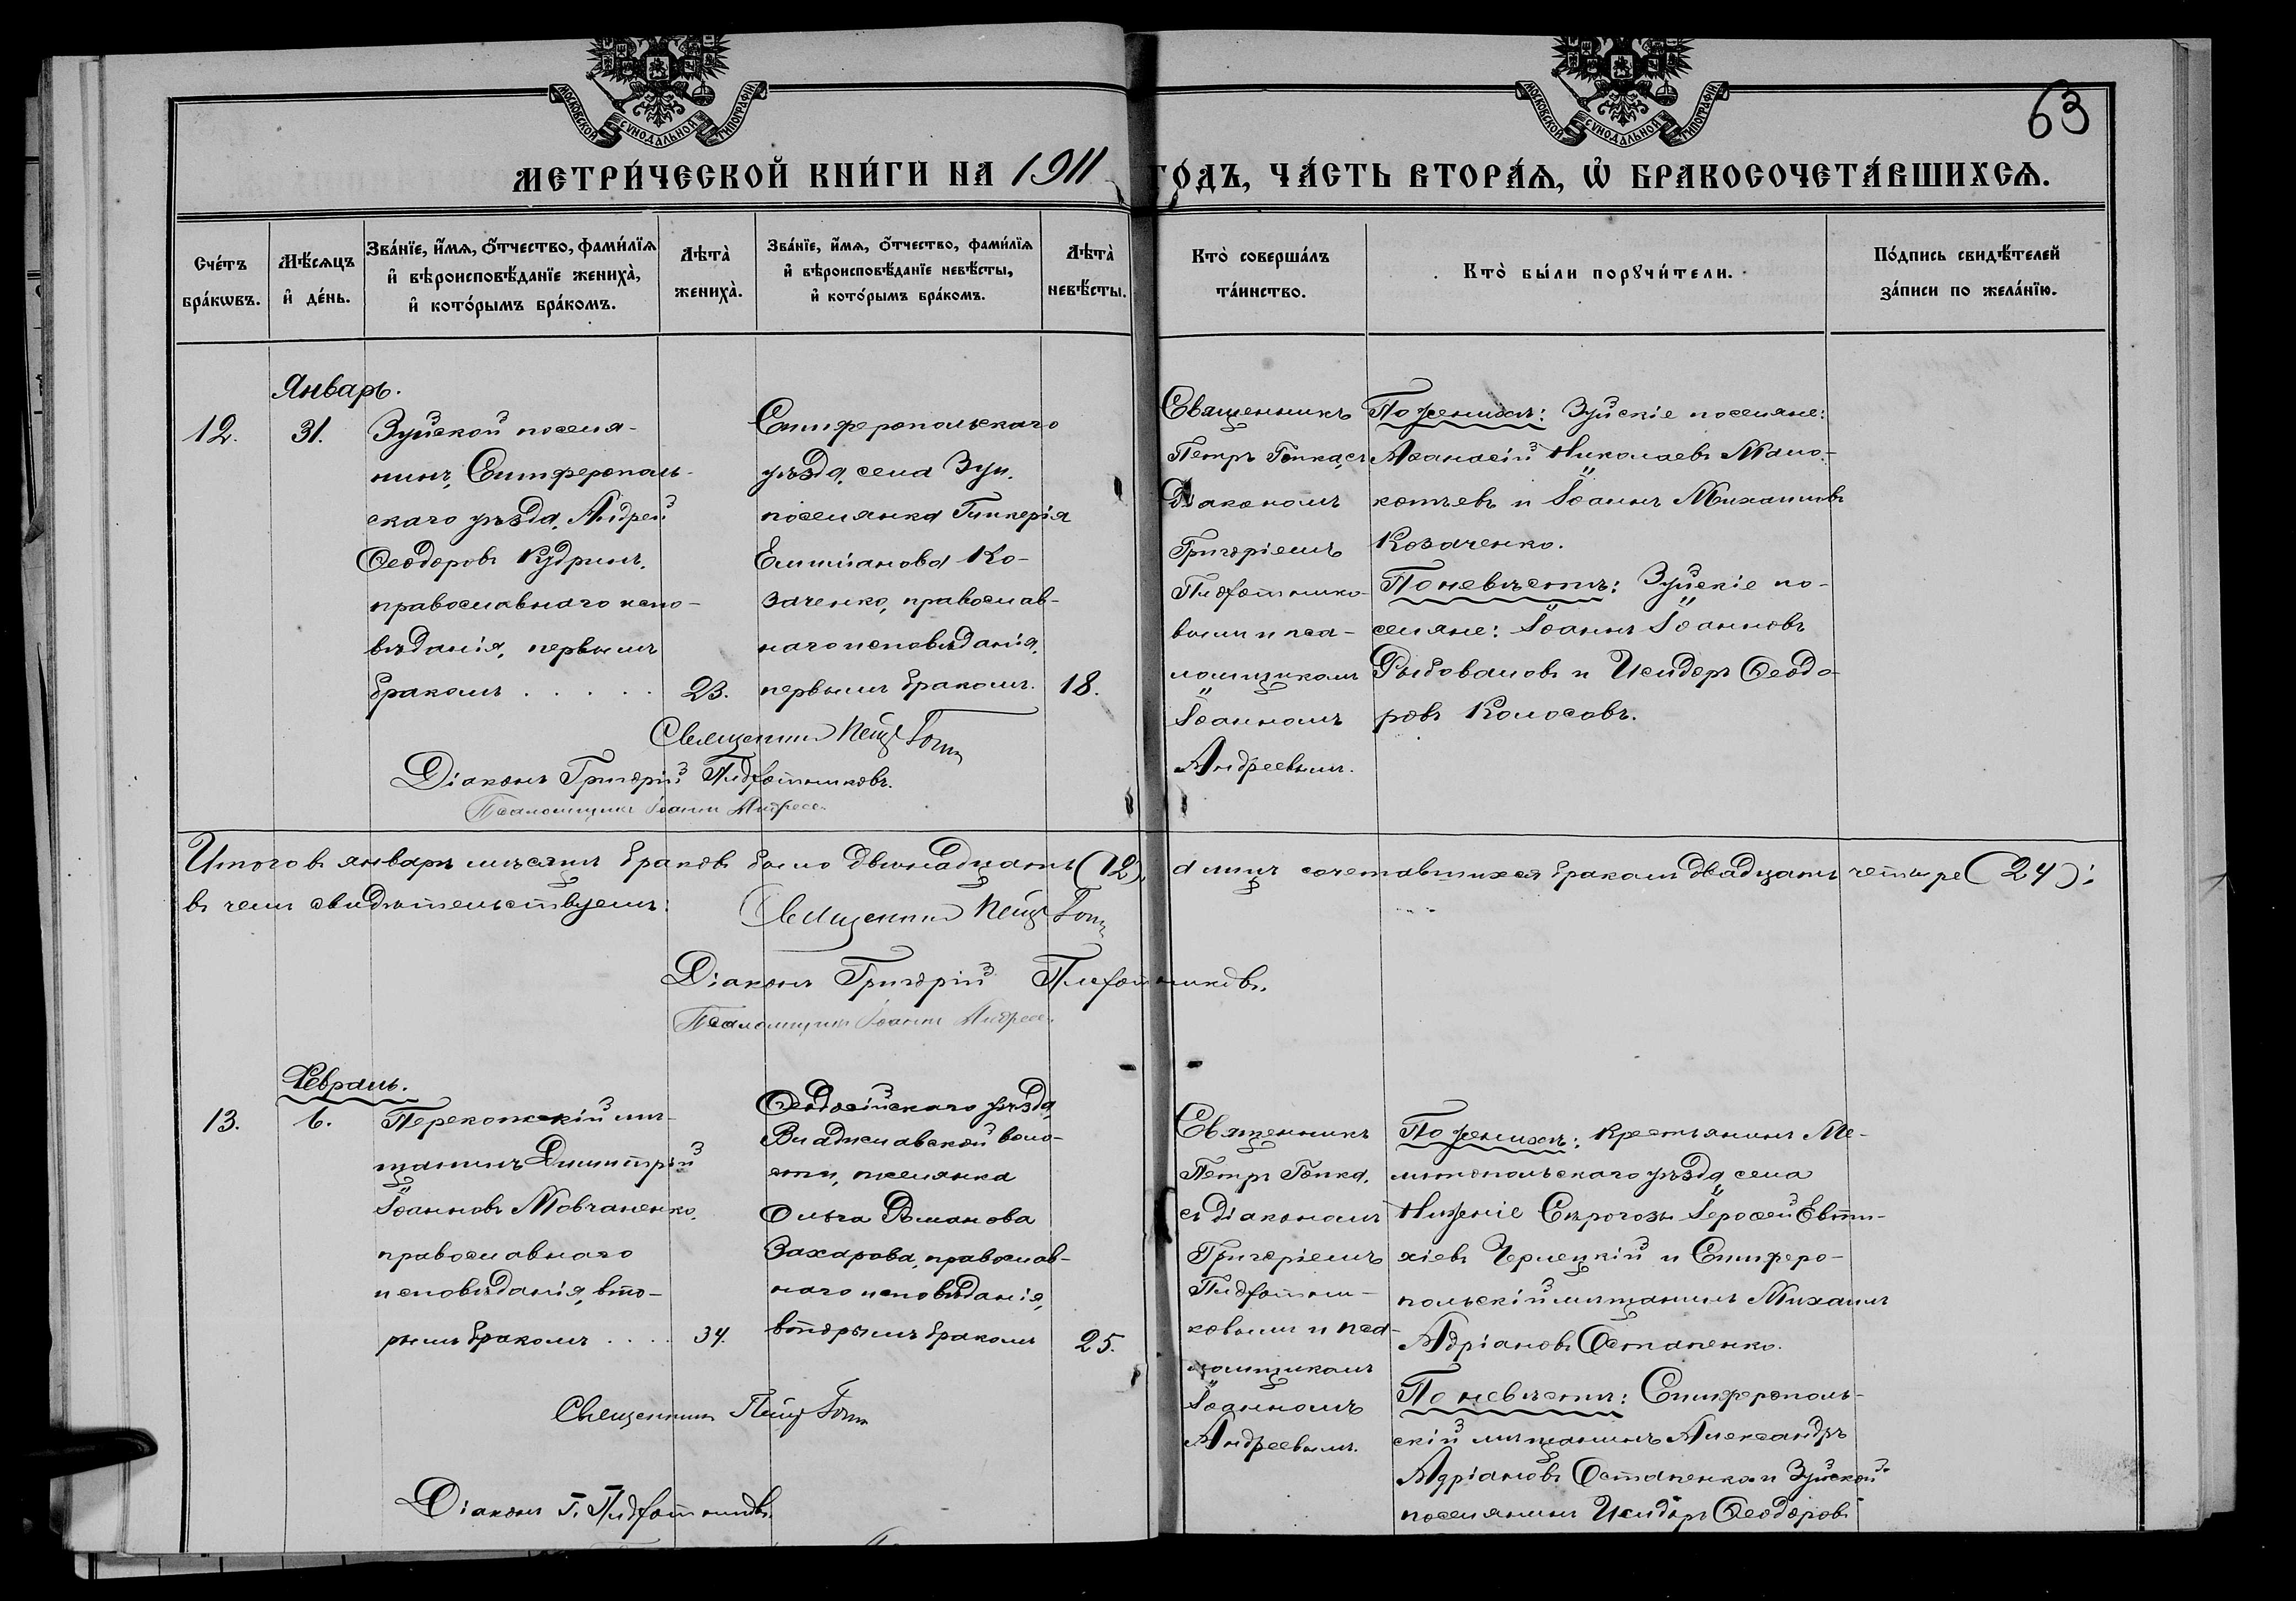 МОСКОВСКОЙ СУНОДАЛЬНОЙ ТИПОГРАФІИ
МОСКОВСКОЙ СУНОДАЛЬНОЙ ТИПОГРАФІИ
63
МЕТРИ́ЧЕСКОЙ КНИ́ГИ НА 1911 ГО́ДЪ, ЧА́СТЬ ВТОРА́Ѧ, Ѿ БРАКОСОЧЕТА́ВШИХСѦ.
Сче́тъ
бра́кѡвъ.
Мѣ́сѧцъ
и҆ де́нь.
Зва́нїе, и҆́мѧ, ѻ҆́тчество, фами́лїѧ
и҆ вѣроисповѣ́данїе жениха̀,
и҆ кото́рымъ бра́комъ.
Лѣта̀
жениха̀.
Зва́нїе, и҆́мѧ, ѻ҆́тчество, фами́лїѧ
и҆ вѣроисповѣ́данїе невѣ́сты,
и҆ кото́рымъ бра́комъ.
Лѣта̀
невѣ́сты.
Кто̀ соверша́лъ
та́инство.
Кто̀ бы́ли порꙋчи́тели.
По́дпись свидѣ́телей
за́писи по жела́нїю.
Январь.
12.
31.
Зуйской поселя-
нинъ, Симферополь-
скаго уѣзда, Андрей
Ѳеодоровъ Кудринъ,
православнаго испо-
вѣданія, первымъ
бракомъ . . . . .
23.
Симферопольскаго
уѣзда, села Зуи,
поселянка Гликерія
Емиліанова Ко-
заченко, православ-
наго исповѣданія,
первымъ бракомъ.
18.
Священникъ
Петръ Гопка, съ
Діакономъ
Григоріемъ
Плохотнико-
вымъ и пса-
ломщикомъ
Іоанномъ
Андреевымъ.
По женихѣ: Зуйскіе поселяне:
Аѳанасій Николаевъ Мало-
котьевъ и Іоаннъ Михаиловъ
Козаченко.
По невѣстѣ: Зуйскіе по-
селяне: Іоаннъ Іоанновъ
Рыбоваловъ и Исидоръ Ѳеодо-
ровъ Колосовъ.
Священникъ Петръ Гопка
Діаконъ Григорій Плохотниковъ.
Псаломщикъ Іоаннъ Андреев
Итого въ январѣ мѣсяцѣ браковъ было двѣнадцать (12), а лицъ сочетавшихся бракомъ двадцать четыре (24);
въ чемъ свидѣтельствуемъ:
Священникъ Петръ Гопка
Діаконъ Григорій Плохотниковъ.
Псаломщикъ Іоаннъ Андреев
Февраль.
13.
6.
Перекопскій мѣ-
щанинъ Димитрій
Іоанновъ Мовчаненко,
православнаго
исповѣданія, вто-
рымъ бракомъ . . . .
34.
Ѳеодосійскаго уѣзда,
Владиславской воло-
сти, поселянка
Ольга Романова
Захарова, православ-
наго исповѣданія,
вторымъ бракомъ
25.
Священникъ
Петръ Гопка,
съ діакономъ
Григоріемъ
Плохотни-
ковымъ и пса-
ломщикомъ
Іоанномъ
Андреевымъ.
По женихѣ: крестьянинъ Ме-
литопольскаго уѣзда, села
Нижніе Сѣрогозы Іероѳей Евти-
хіевъ Чернецкій и Симферо-
польскій мѣщанинъ Михаилъ
Адріановъ Остапенко.
По невѣстѣ: Симферополь-
скій мѣщанинъ Александръ
Адріановъ Остапенко и Зуйской
поселянинъ Исидоръ Ѳеодоровъ
Священникъ Петръ Гопка
Діаконъ Г. Плохотниковъ.